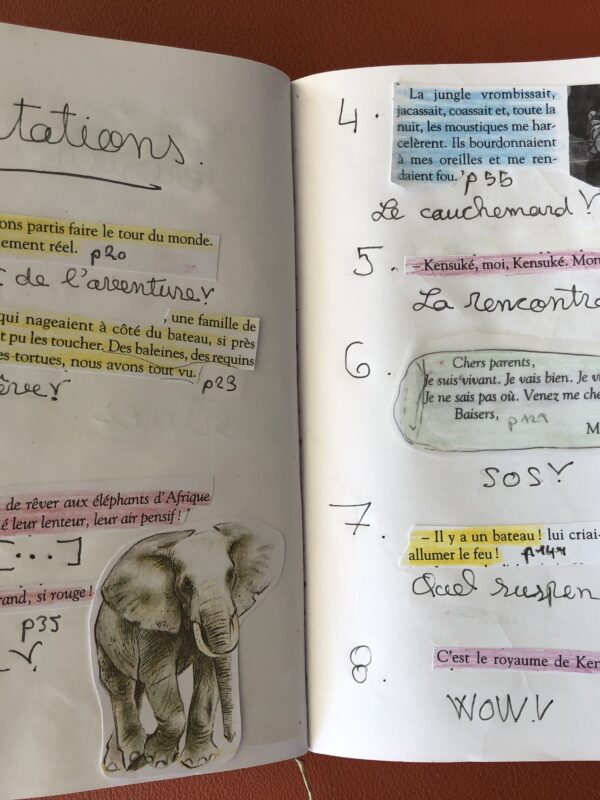 tations.
ons partis faire le tour du monde.
lement réel. p20
de l'aventure!
, une famille de
qui nageaient à côté du bateau, si près
t pu les toucher. Des baleines, des requins
es tortues, nous avons tout vu.
p23
de rêver aux éléphants d'Afrique
é leur lenteur, leur air pensif !
[...]
rand, si rouge !
p35
4.
La jungle vrombissait,
jacassait, coassait et, toute la
nuit, les moustiques me har-
celèrent. Ils bourdonnaient
à mes oreilles et me ren-
daient fou. p55
Le cauchemard !
5. – Kensuké, moi, Kensuké. Mon
La rencontre
6.
Chers parents,
Je suis vivant. Je vais bien. Je v
Je ne sais pas où. Venez me che
Baisers, p129
M
SOS!
7.
– Il y a un bateau ! lui criai-
allumer le feu !
Quel suspen
8.
C'est le royaume de Ken
WOW!